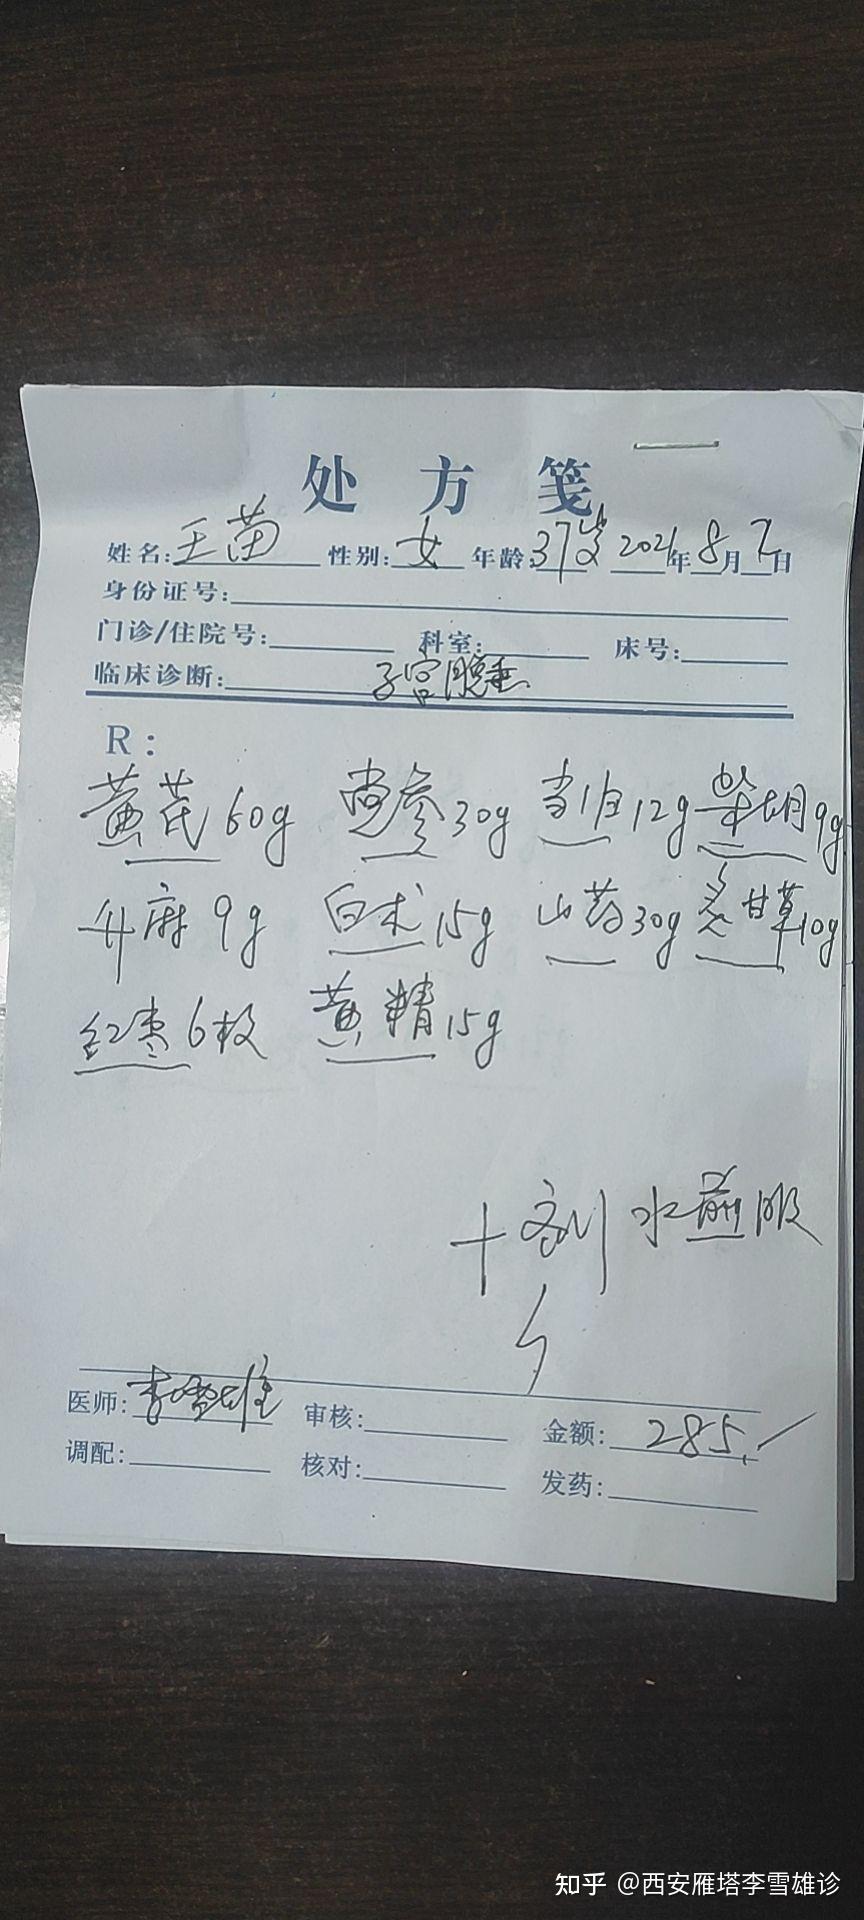 处方笺
姓名:王苗 性别:女 年龄:37岁 2021年8月7日
身份证号:
门诊/住院号: 科室: 床号:
临床诊断: 子宫脱垂
R:
黄芪60g 党参30g 当归12g 柴胡9g
升麻9g 白术15g 山药30g 炙甘草10g
红枣6枚 黄精15g
十剂 水煎服
医师:李雪雄 审核: 金额:285.
调配: 核对: 发药:
知乎 @西安雁塔李雪雄诊